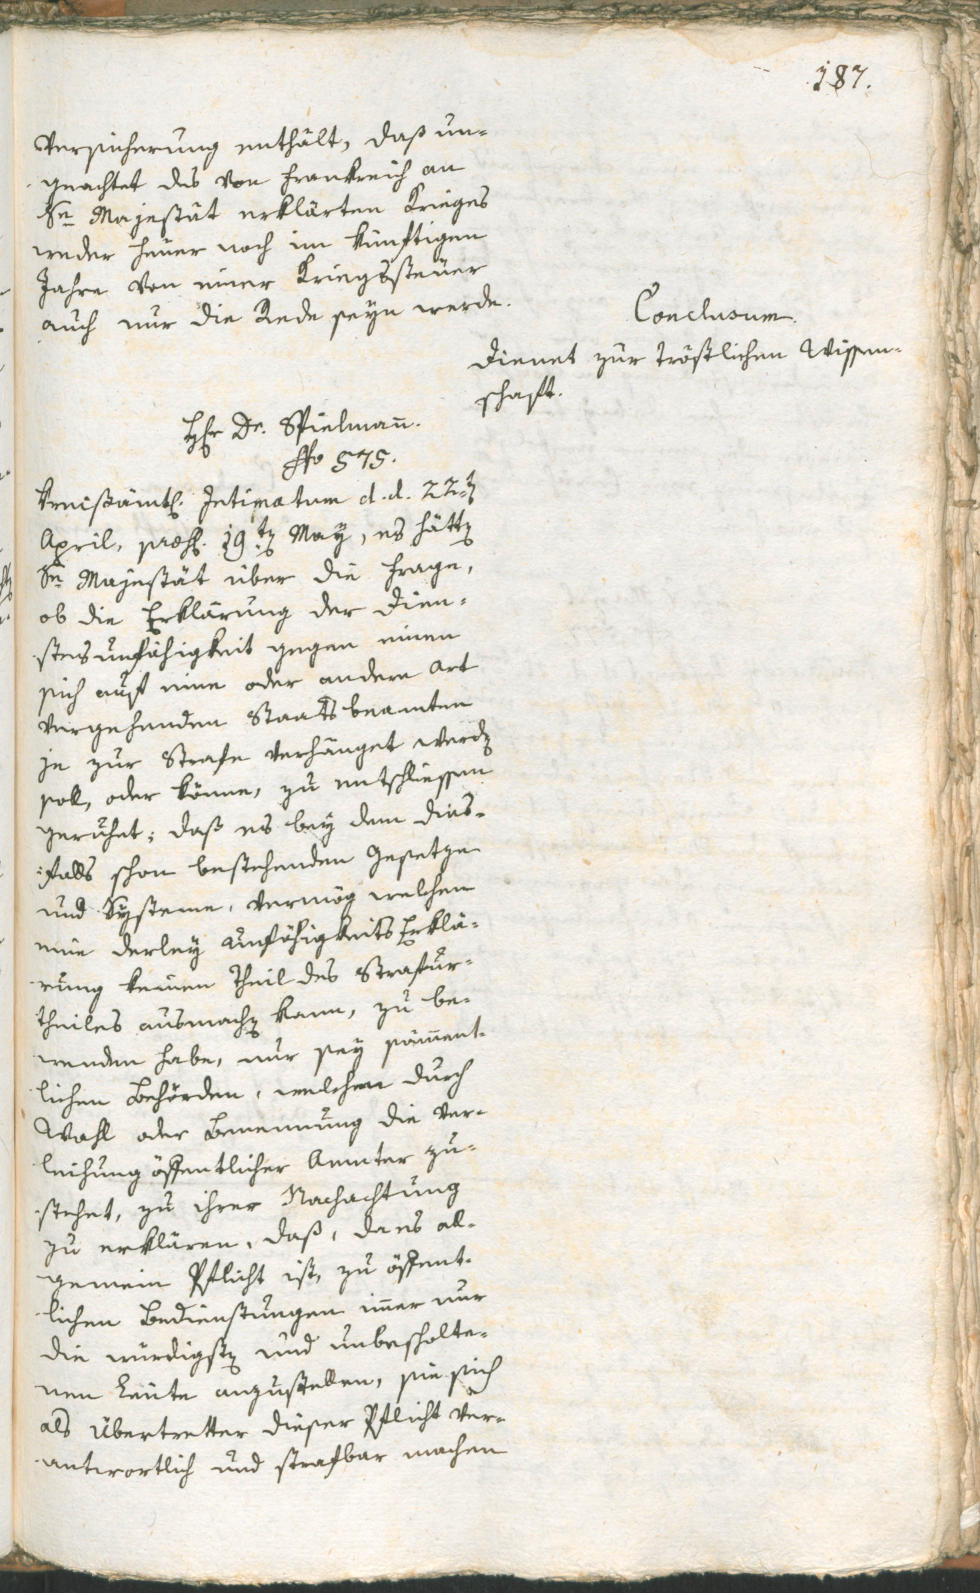 187.
Versicherung enthält, daß un-
geachtet des von Frankreich an
Se Majestät erklärten Krieges
weder heuer noch im künftigen
Jahre von einer Kriegssteüer
auch nur die Rede seyn werde.
Conclusum.
Dienet zur tröstlichen Wissen-
schaft.
Hr Dr. Spielmann.
No 575.
Kreisämtl. Intimatum d. d. 22t
April, præs. 19ten May, es hätten
Se Majestät über die Frage,
ob die Erklärung der Dien-
stesunfähigkeit gegen einen
sich auf eine oder andere Art
vergehenden Staatsbeamten
je zur Strafe verhänget werden
soll, oder könne, zu entschliessen
geruhet; daß es bey dem dies-
falls schon bestehenden Gesetze
und Systeme, vermög welchem
eine derley UnfähigkeitsErklä-
rung keinen Theil des Strafur-
theiles ausmachen kann, zu be-
wenden habe, nur sey sämment-
lichen Behörden, welchen durch
Wahl oder Benennung die Ver-
leihung öffentlicher Aemter zu-
stehet, zu ihrer Nachachtung
zu erklären, daß, da es al-
gemein Pflicht ist, zu öffent-
lichen Bedienstungen immer nur
die würdigsten und unbescholte-
nen Leute anzustellen, sie sich
als Übertretter dieser Pflicht ver-
antwortlich und strafbar machen